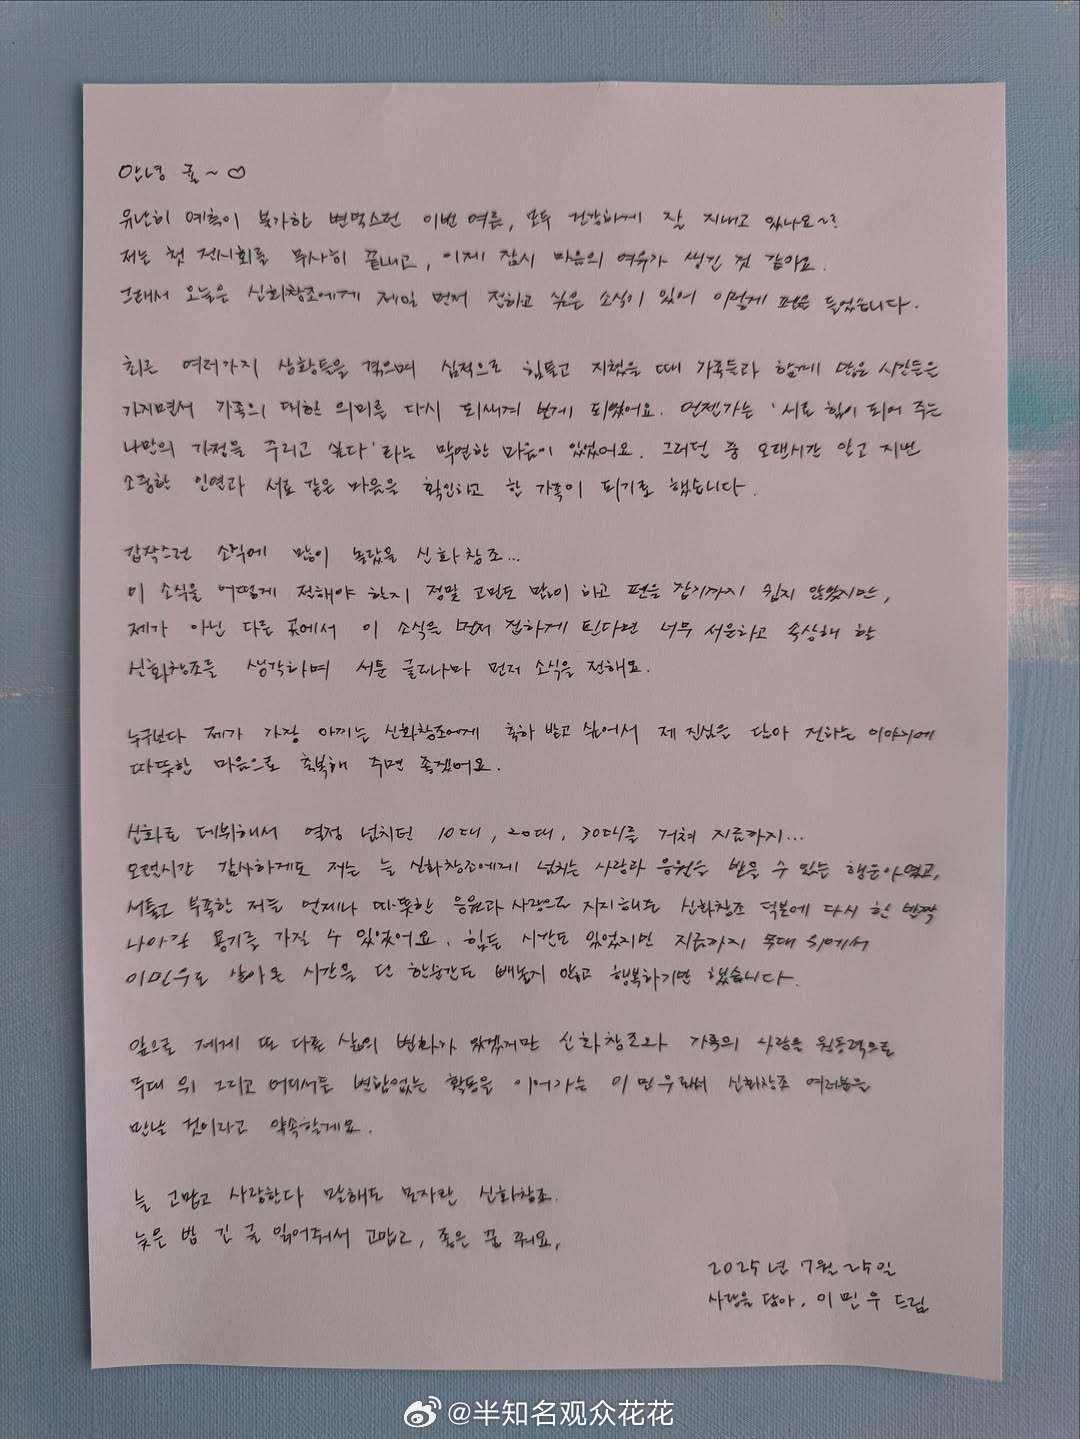 안녕 귤~♡
유난히 예측이 불가한 변덕스런 이번 여름, 모두 건강하게 잘 지내고 있나요~?
저는 첫 전시회를 무사히 끝내고, 이제 잠시 마음의 여유가 생긴 것 같아요.
그래서 오늘은 신화창조에게 제일 먼저 전하고 싶은 소식이 있어 이렇게 펜을 들었습니다.
최근 여러가지 상황들을 겪으며 심적으로 힘들고 지쳤을 때 가족들과 함께 많은 시간들을
가지면서 가족의 대한 의미를 다시 되새겨 보게 되었어요. 언젠가는 '서로 힘이 되어 주는
나만의 가정을 꾸리고 싶다'라는 막연한 마음이 있었어요. 그러던 중 오랜시간 알고 지낸
소중한 인연과 서로 같은 마음을 확인하고 한 가족이 되기로 했습니다.
갑작스런 소식에 많이 놀랐을 신화창조...
이 소식을 어떻게 전해야 할지 정말 고민도 많이 하고 펜을 잡기까지 쉽지 않았지만,
제가 아닌 다른 곳에서 이 소식을 먼저 접하게 된다면 너무 서운하고 속상해 할
신화창조를 생각하며 서툰 글로나마 먼저 소식을 전해요.
누구보다 제가 가장 아끼는 신화창조에게 축하 받고 싶어서 제 진심을 담아 전하는 이야기에
따뜻한 마음으로 축복해 주면 좋겠어요.
신화로 데뷔해서 열정 넘치던 10대, 20대, 30대를 거쳐 지금까지...
오랜시간 감사하게도 저는 늘 신화창조에게 넘치는 사랑과 응원을 받을 수 있는 행운아였고,
서툴고 부족한 저를 언제나 따뜻한 응원과 사랑으로 지지해준 신화창조 덕분에 다시 한 발짝
나아갈 용기를 가질 수 있었어요. 힘든 시간도 있었지만 지금까지 무대 위에서
이민우로 살아온 시간을 단 한순간도 빼놓지 않고 행복하기만 했습니다.
앞으로 제게 또 다른 삶의 변화가 있겠지만 신화창조와 가족의 사랑을 원동력으로
무대 위 그리고 어디서든 변함없는 활동을 이어가는 이민우로서 신화창조 여러분을
만날 것이라고 약속할게요.
늘 고맙고 사랑한다 말해도 모자란 신화창조.
늦은 밤 긴 글 읽어줘서 고맙고, 좋은 꿈 꿔요.
2025년 7월 25일
사랑을 담아, 이민우 드림
@半知名观众花花